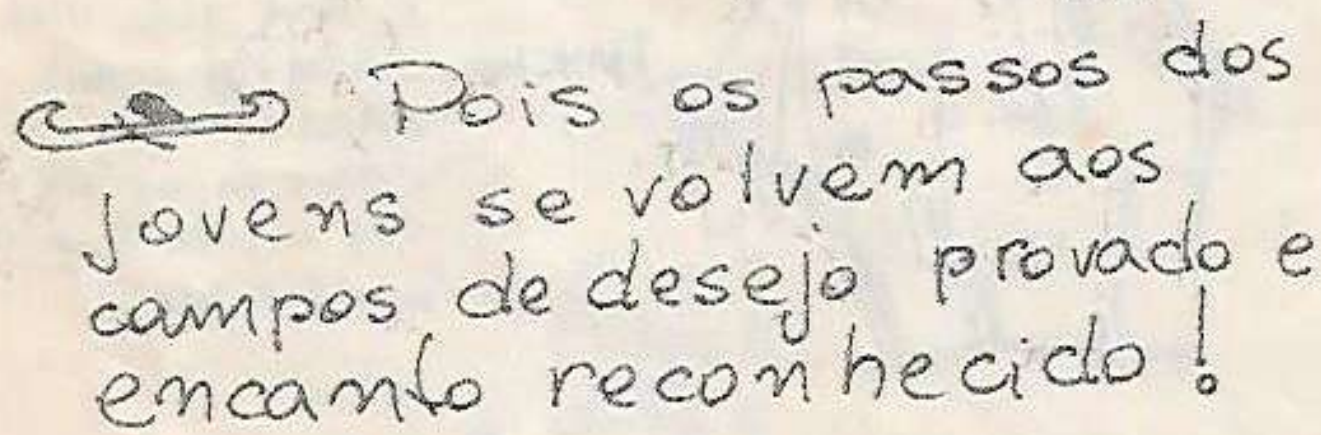 Pois os passos dos
jovens se volvem aos
campos de desejo provado e
encanto reconhecido!